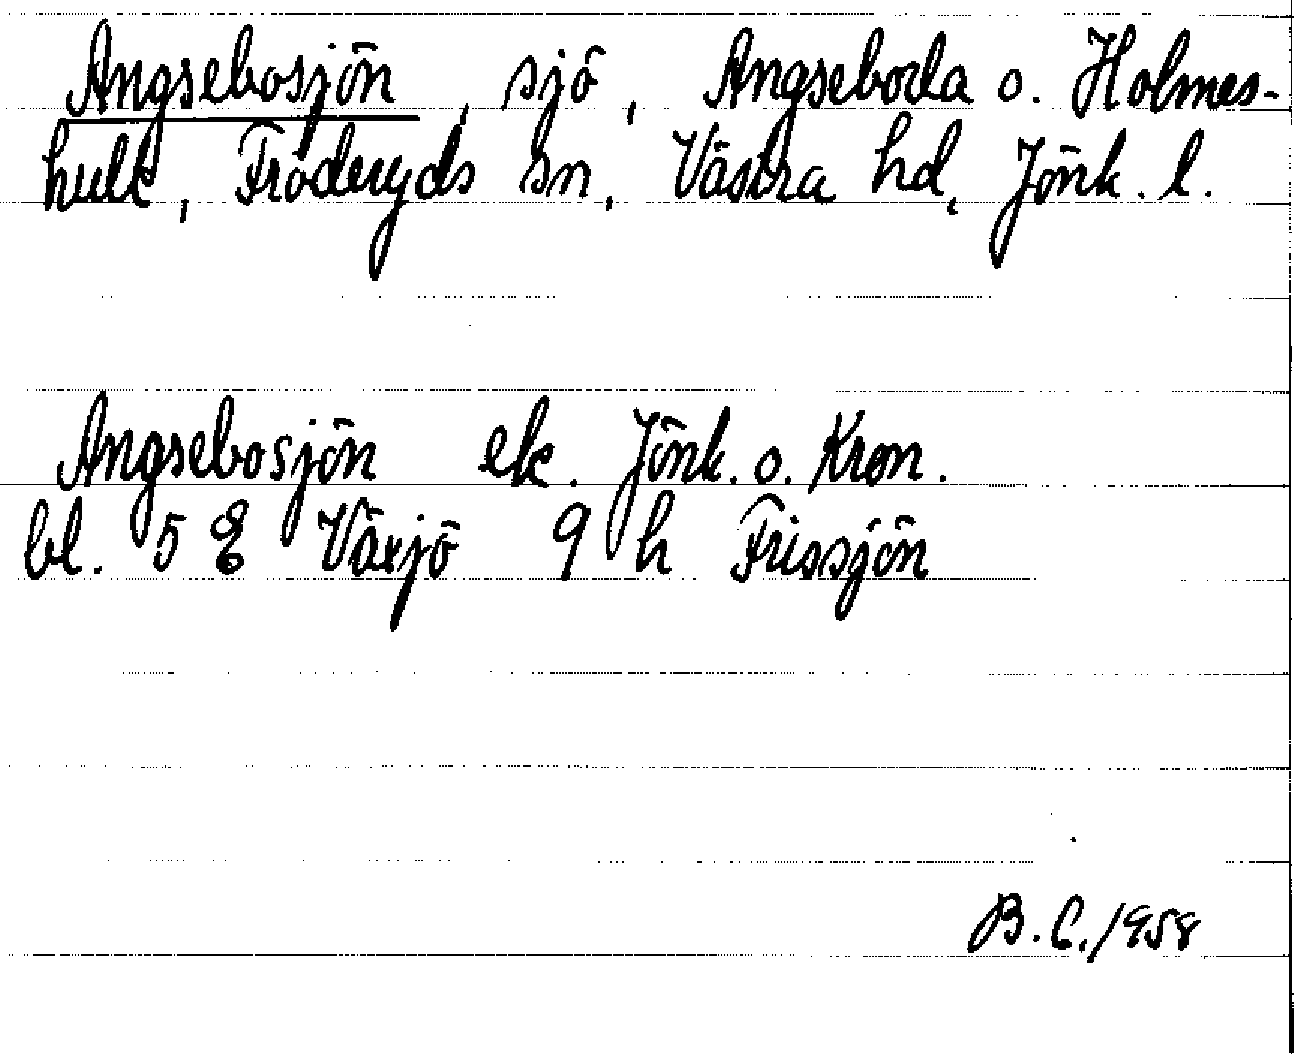 Angsebosjön, sjö, Angseboda o. Holmes-
hult, Fröderyds sn, Västra hd, Jönk. l.
Angsebosjön ek. Jönk. o. Kron.
bl. 5 E Växjö 9 h Frissjön
B.C./1958